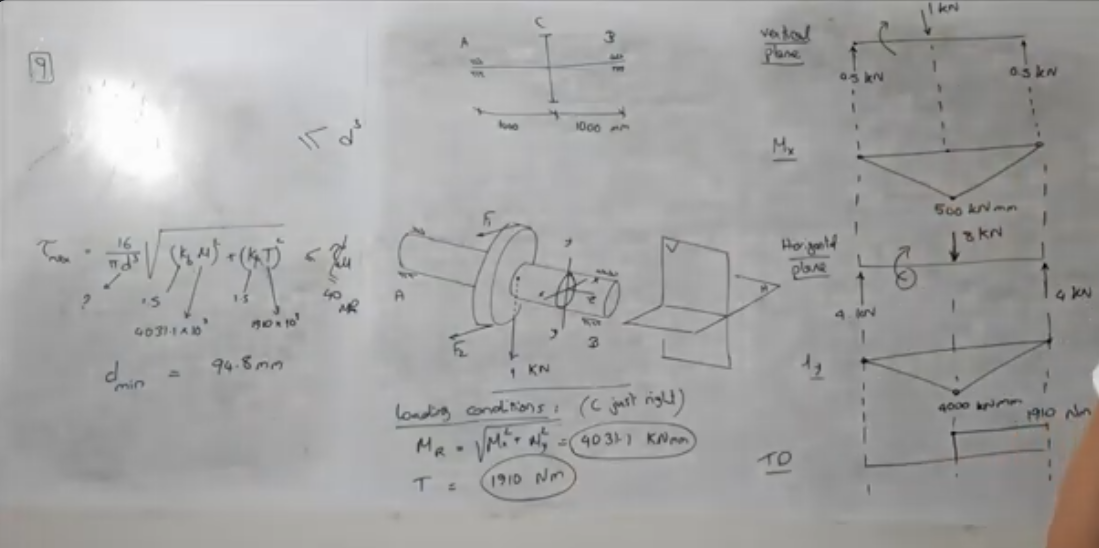 9
π d³
τmax = 16/πd³ √((kb M)² + (kt T)²) ≤
?
1.5
1.5
40
4031.1 × 10³
1910 × 10³
dmin = 94.8 mm
C
A
B
1000
1000 mm
F1
A
F2
B
1 KN
M
Loading conditions: (C just right)
MR = √(Mx² + My²) = 4031.1 KNmm
T = 1910 Nm
vertical plane
1 KN
0.5 KN
0.5 KN
Mx
500 KNmm
Horizontal plane
8 KN
4 KN
4 KN
4000 KNmm
1910 Nm
TD